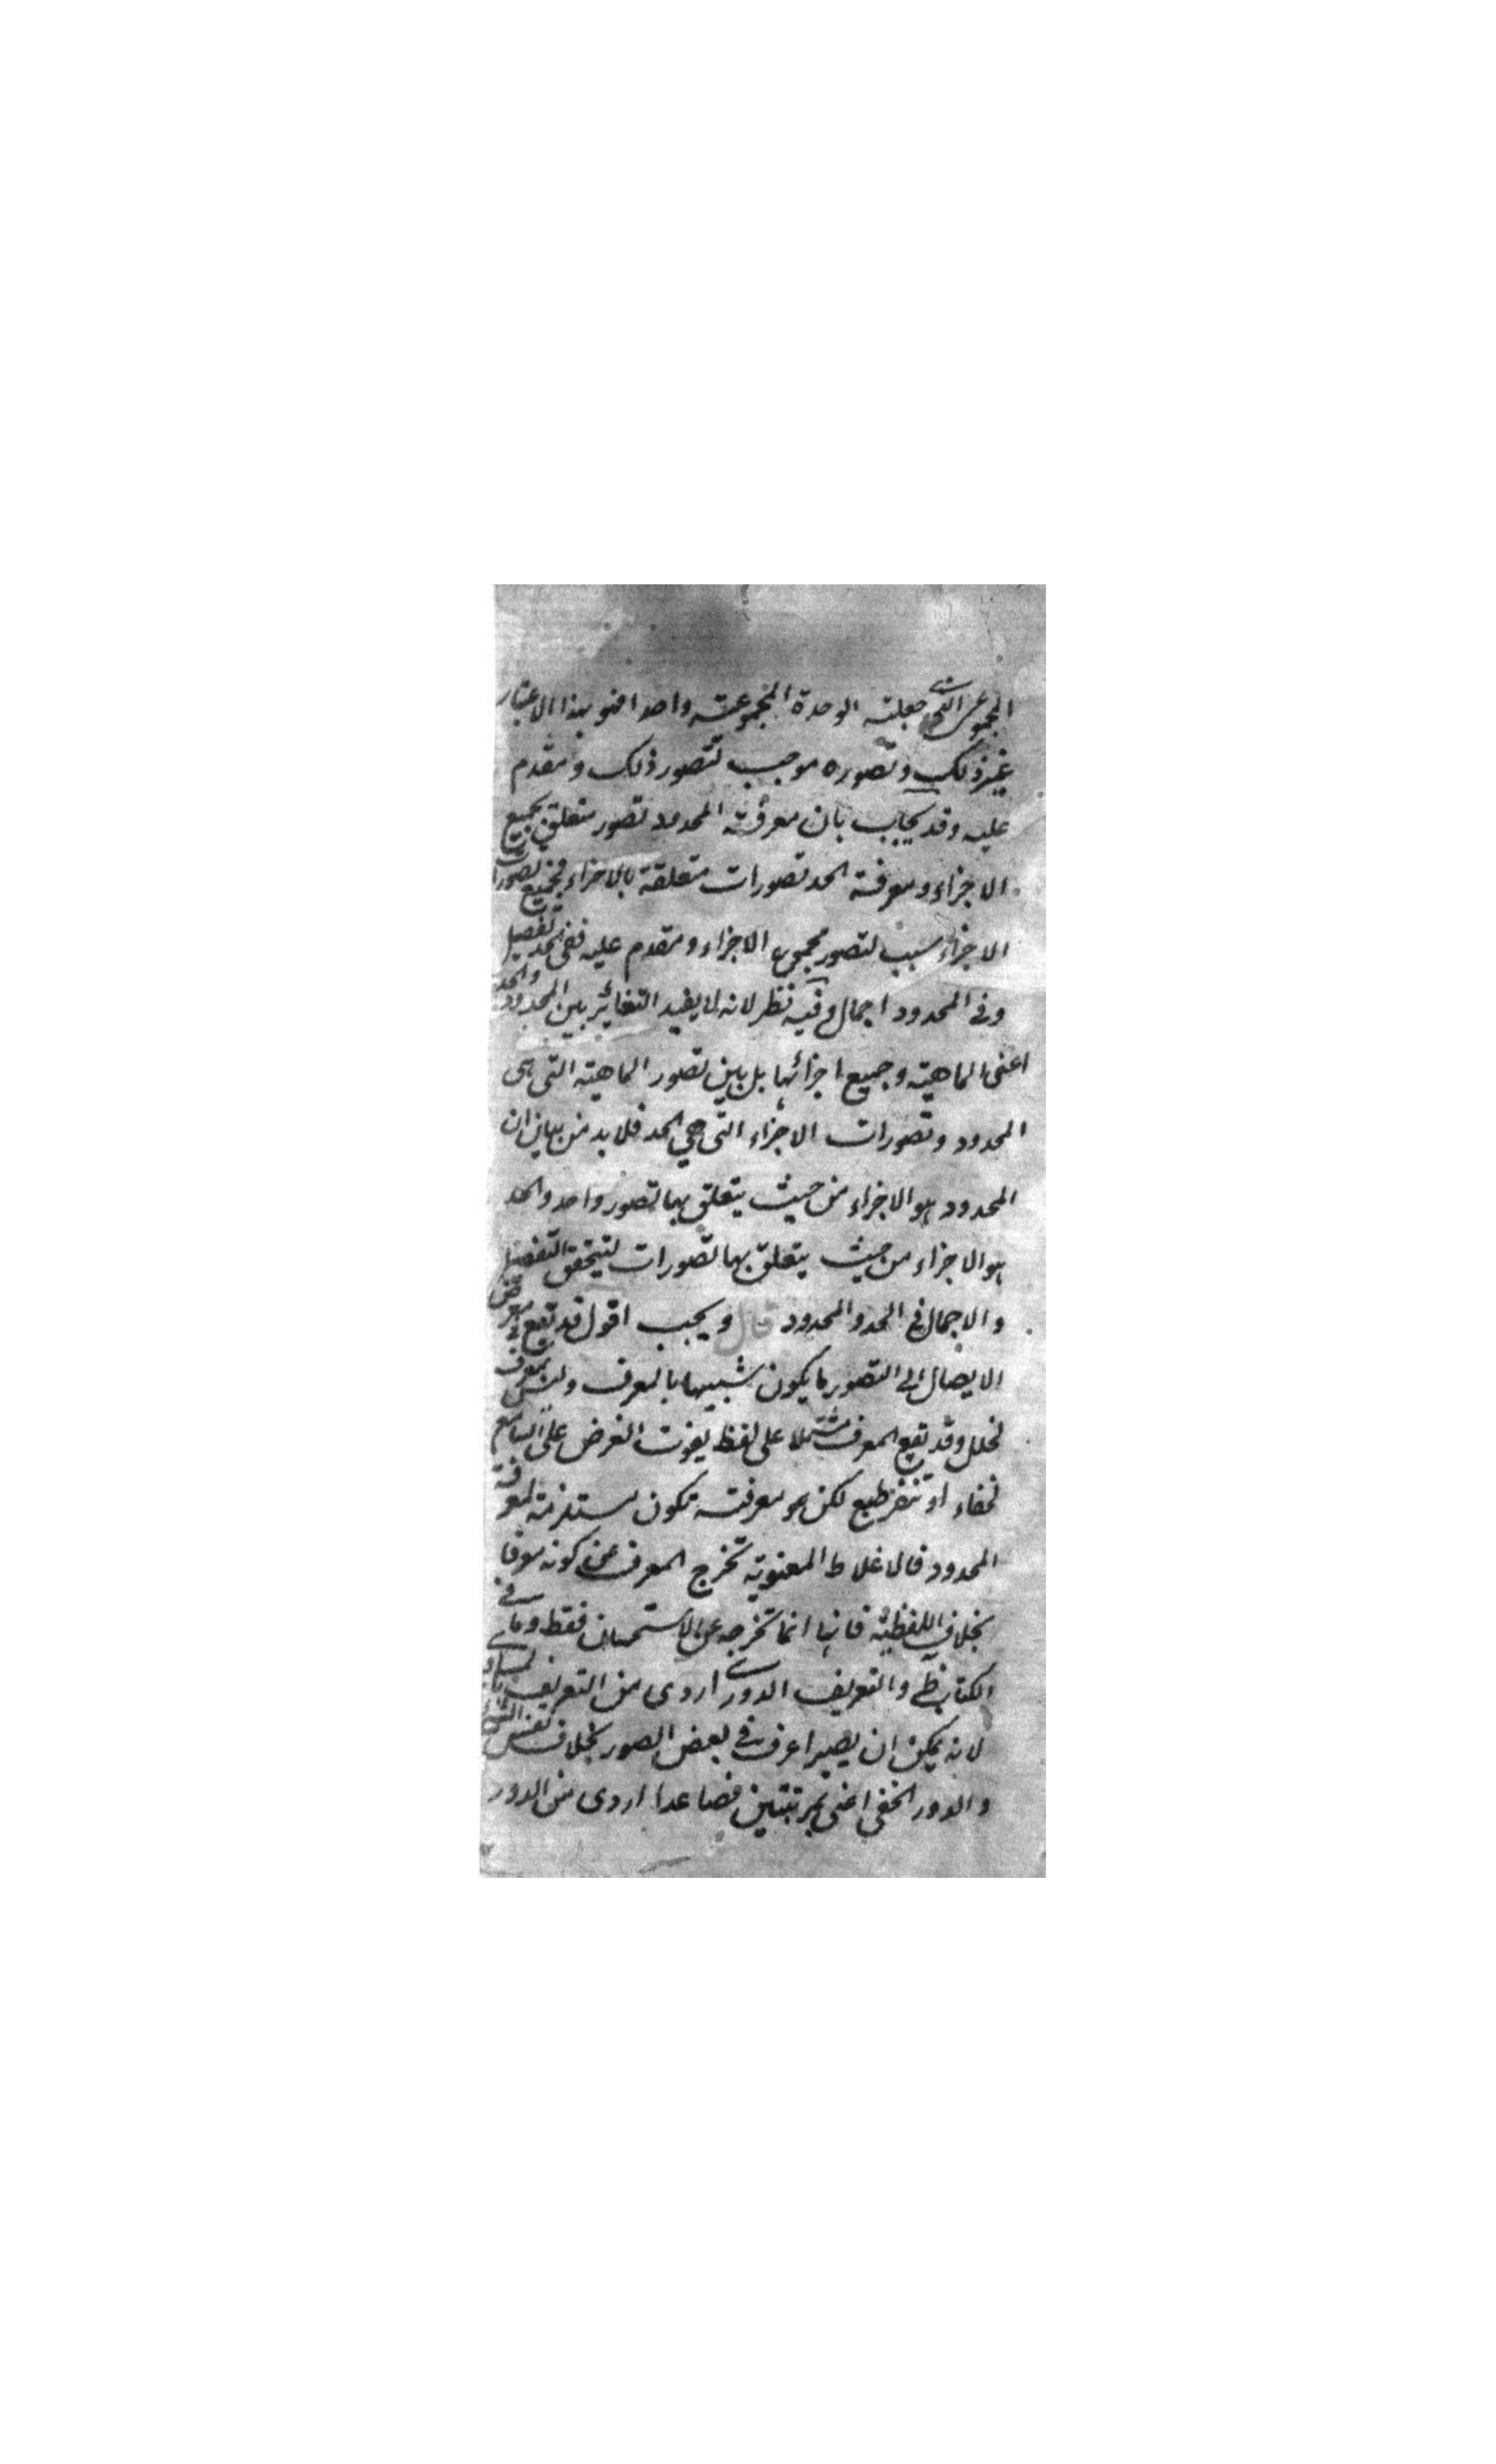 المجموع الشى جعلته الوحدة المجموعية واحدا فهو بهذا الاعتبار
غير ذلك وتصوره موجب لتصور ذلك ومتقدم
عليه وقد يجاب بان معرفة المحدود تصور متعلق بجميع
الاجزاء ومعرفة الحد تصورات متعلقة بالاجزاء فجميع تصورات
الاجزاء سبب لتصور مجموع الاجزاء ومتقدم عليه ففى الحد تفصيل
وفى المحدود اجمال وفيه نظر لانه لا يفيد التغائر بين المحدود والحد
اعنى الماهية وجميع اجزائها بل بين تصور الماهية التى هى
المحدود وتصورات الاجزاء التى هى الحد فلا بد من بيان ان
المحدود هو الاجزاء من حيث يتعلق بها تصور واحد والحد
هو الاجزاء من حيث يتعلق بها تصورات ليتحقق التفصيل
والاجمال فى الحد والمحدود قال ويجب اقول قد يقع فى معرض
الايصال الى التصور ما يكون شبيها بالمعرف وليس بمعرف
لخلل وقد يقع المعرف مشتملا على لفظ يفوت الغرض على السامع
لخفاء او تنفر طبع لكن هو معرفته تكون مستلزمة لمعرفة
المحدود فالاغلاط المعنوية تخرج المعرف عن كونه معرفا
بخلاف اللفظية فانها انما تخرجه عن الاستحسان فقط وما فى
الكتاب ظ والتعريف الدورى اردى من التعريف بالمساوى
لانه يمكن ان يصير اعرف فى بعض الصور بخلاف نفس الشئ
والدور الخفى اعنى بمرتبتين فصاعدا اردى من الدور